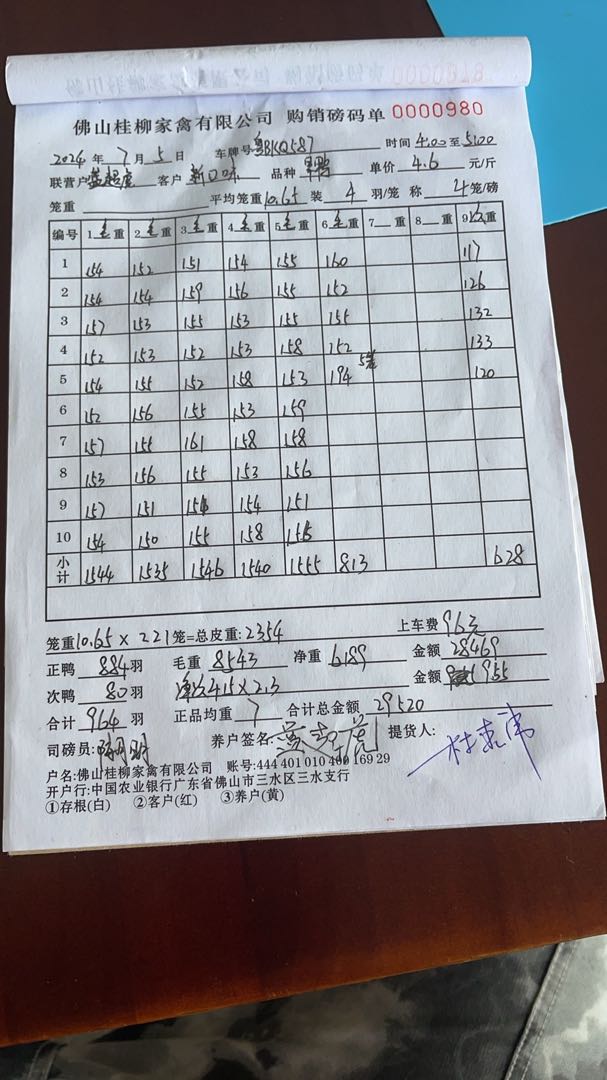 佛山桂柳家禽有限公司 购销磅码单 0000980
2024 年 7 月 5 日 车牌号 粤BKQ587 时间 4:00 至 5:00
联营户 客户 新口味 品种 单价 4.6 元/斤
笼重 平均笼重 10.65 装 4 羽/笼 称 4 笼/磅
编号 1毛重 2毛重 3毛重 4毛重 5毛重 6毛重 7 重 8 重 9次重
1 154 152 151 154 155 160 117
2 154 154 159 156 155 152 126
3 157 153 155 153 155 155 132
4 152 153 152 153 158 152 133
5 154 155 152 158 153 194 5笼 120
6 152 156 155 153 159
7 157 155 161 158 158
8 153 156 155 153 156
9 157 151 151 154 151
10 154 150 155 158 155
小计 1544 1535 1546 1540 1555 813 628
笼重 10.65 x 221 笼=总皮重: 2354 上车费 96元
正鸭 884 羽 毛重 8543 净重 6189 金额 28469
次鸭 80 羽 415 x 2.3 金额 955
合计 964 羽 正品均重 7 合计总金额 29520
司磅员: 养户签名: 提货人:
户名:佛山桂柳家禽有限公司 账号:444 401 010 400 169 29
开户行:中国农业银行广东省佛山市三水区三水支行
①存根(白) ②客户(红) ③养户(黄)